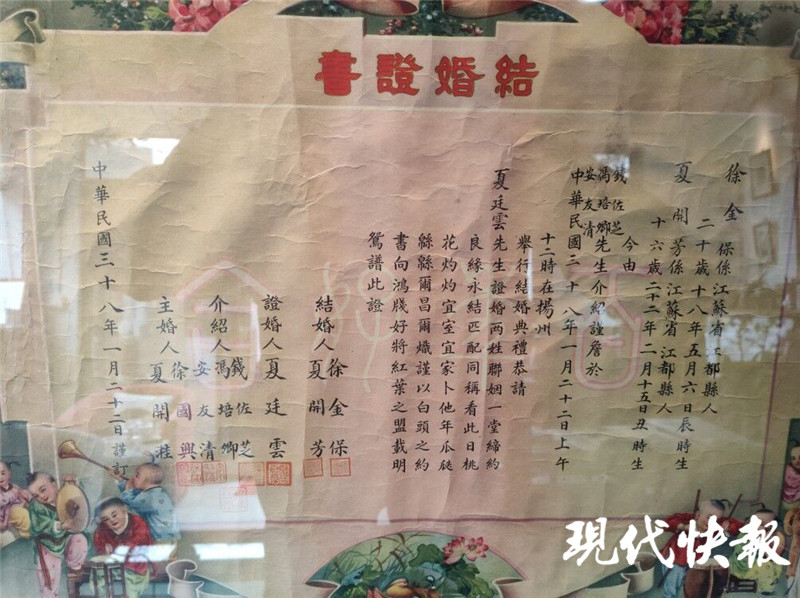 結婚證書
徐金保係江蘇省江都縣人
二十歲十八年五月六日辰時生
夏開芳係江蘇省江都縣人
十六歲二十二年二月十五日丑時生
今由
錢佐芝
馮培卿
安友清
先生介紹謹詹於
中華民國三十八年一月二十二日上午
十二時在揚州
舉行結婚典禮恭請
夏廷雲先生證婚兩姓聯姻一堂締約
良緣永結匹配同稱看此日桃
花灼灼宜室宜家卜他年瓜瓞
緜緜爾昌爾熾謹以白頭之約
書向鴻牋好將紅葉之盟載明
鴛譜此證
結婚人 徐金保
夏開芳
證婚人 夏廷雲
介紹人 錢佐芝
馮培卿
安友清
主婚人 徐國興
夏開
中華民國三十八年一月二十二日謹訂
現代快報